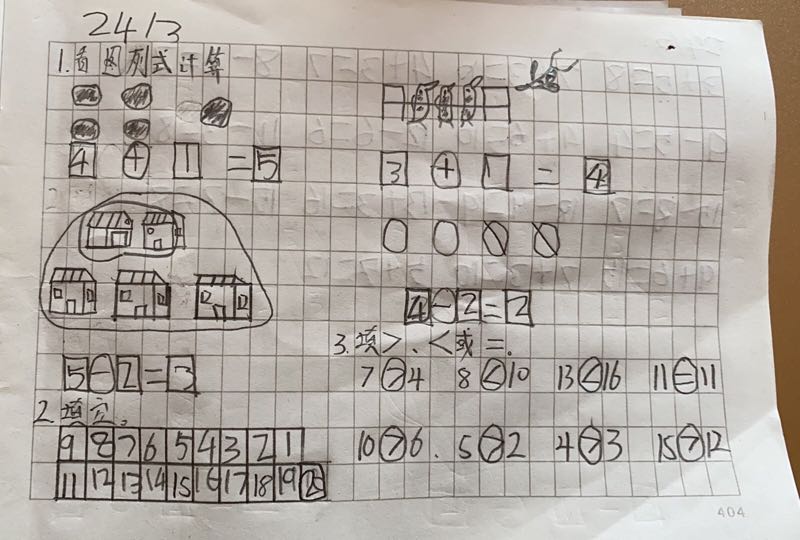 2413
1.看图列式计算
4 + 1 = 5
3 + 1 = 4
4 - 2 = 2
5 - 2 = 3
2.填空。
9 8 7 6 5 4 3 2 1
11 12 13 14 15 16 17 18 19 20
3.填>、<或=。
7 > 4 8 < 10 13 < 16 11 = 11
10 > 6. 5 > 2 4 > 3 15 > 12
404